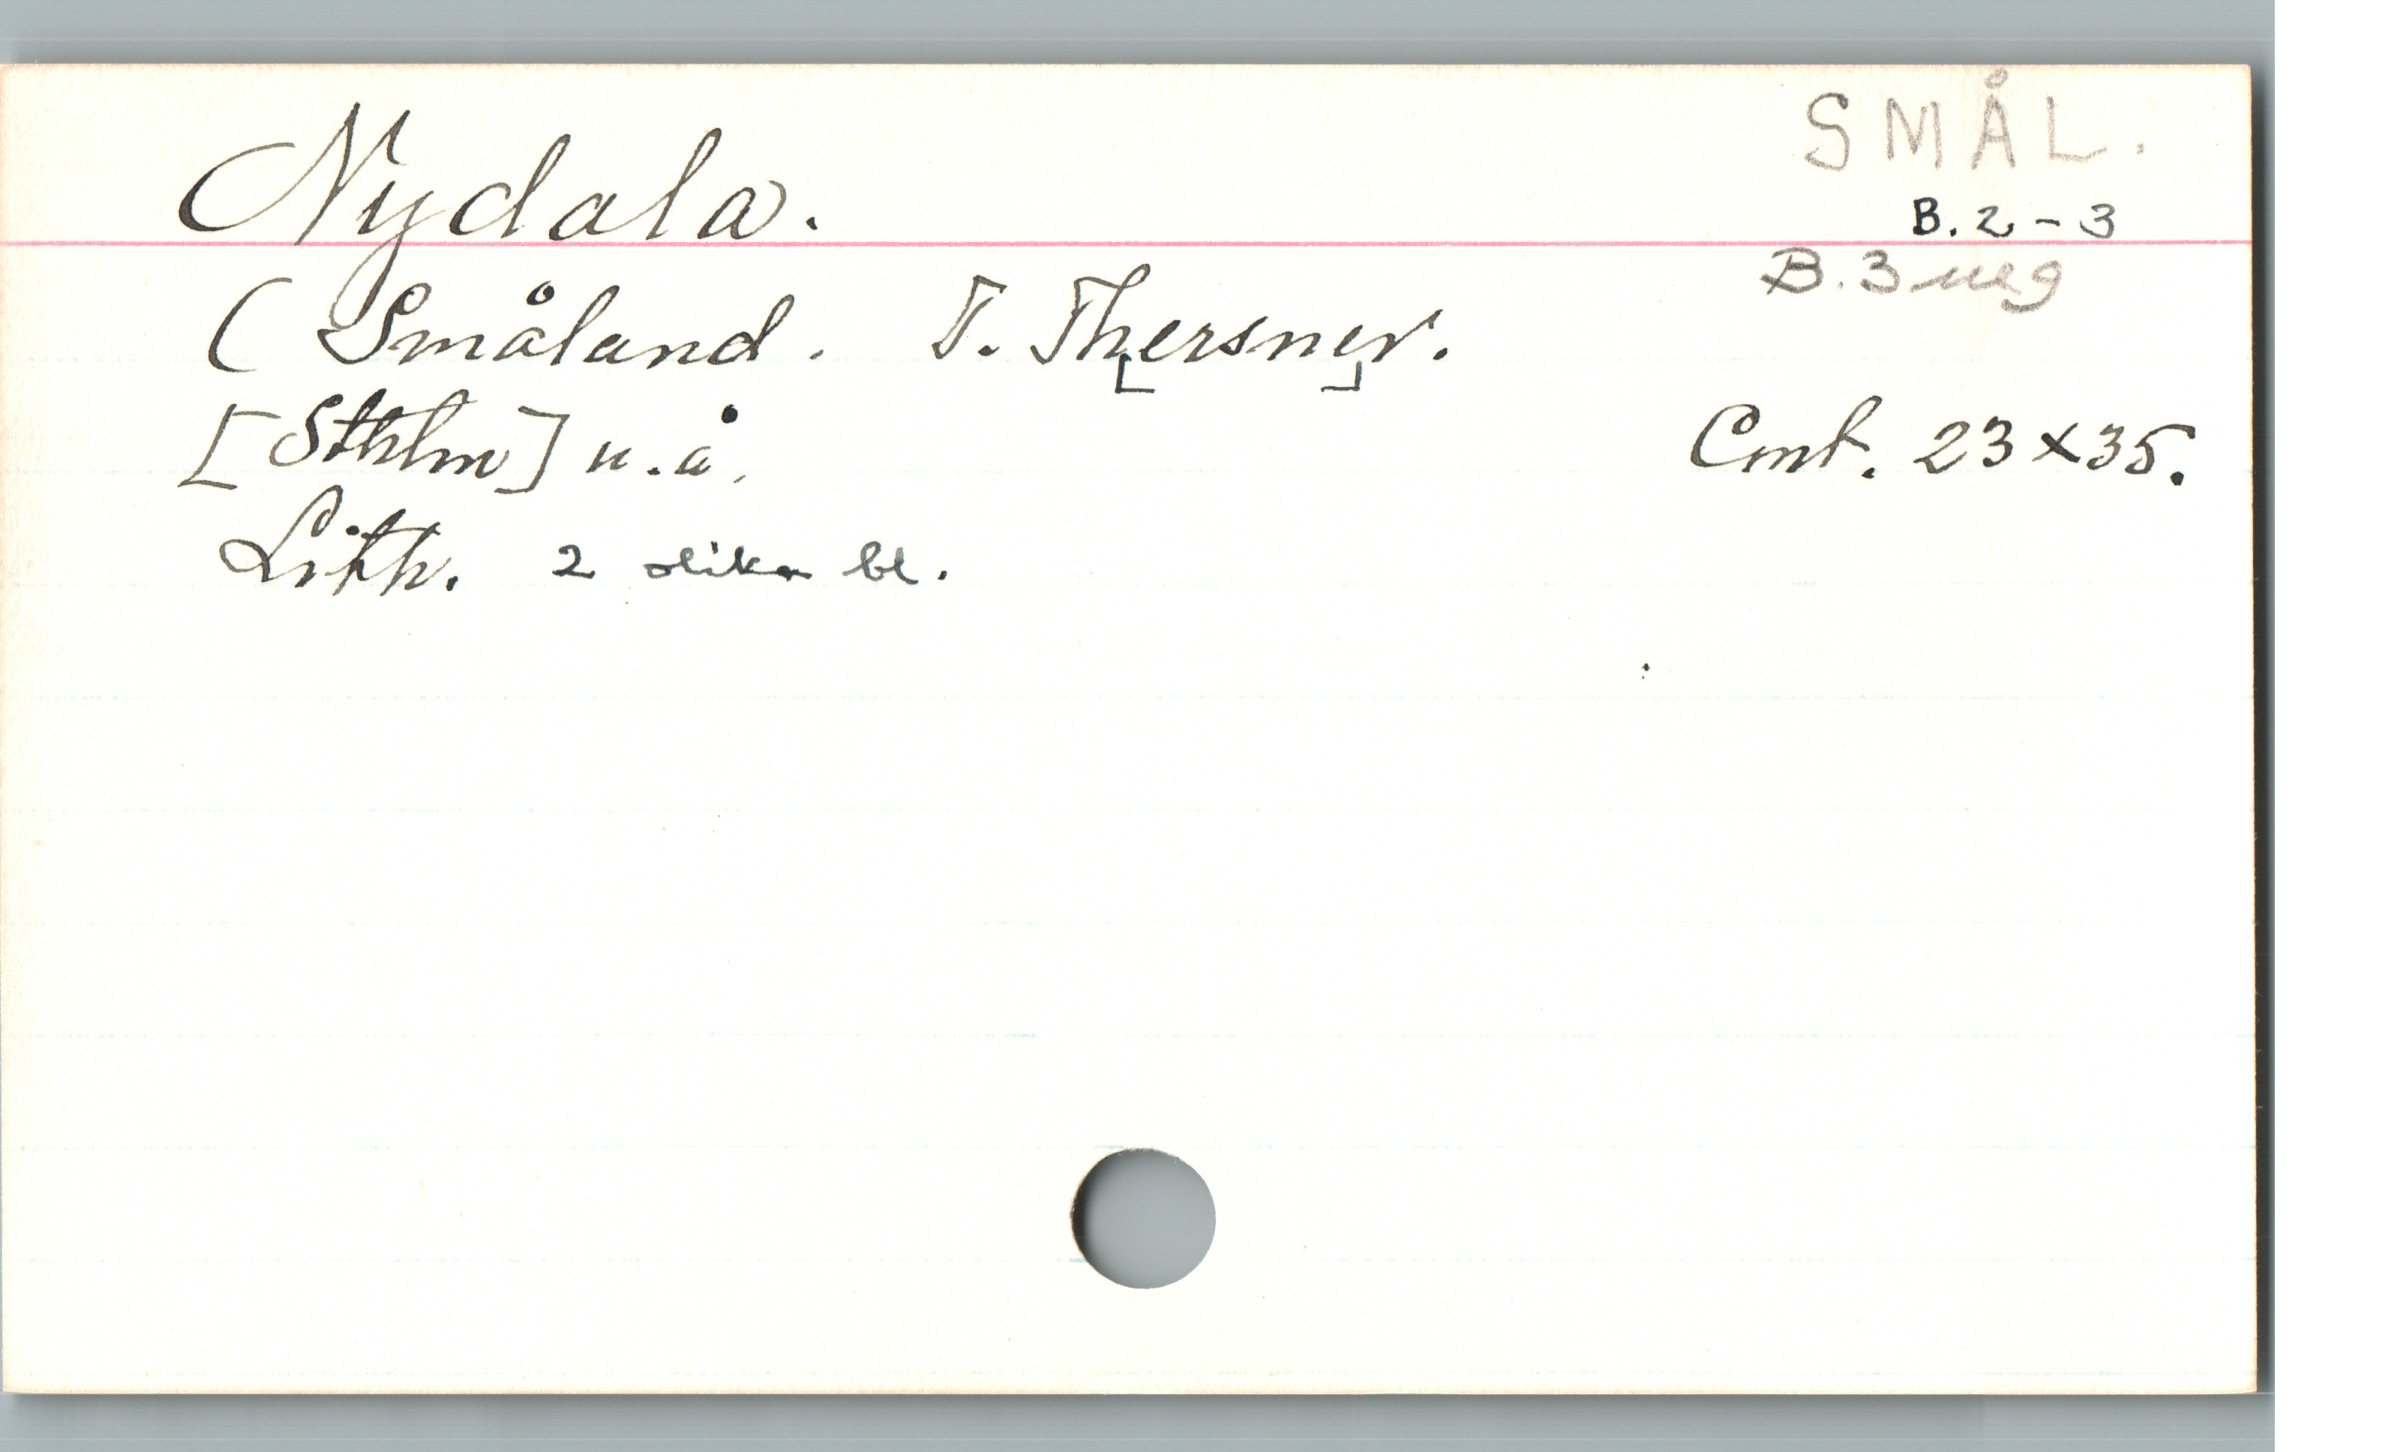 SMÅL.
Nydala.
B. 2 - 3
B. 3 neg
( Småland. T. Th[ersne]r.
[Sthlm] u. å.
Cmt. 23 x 35.
Lith. 2 olika bl.